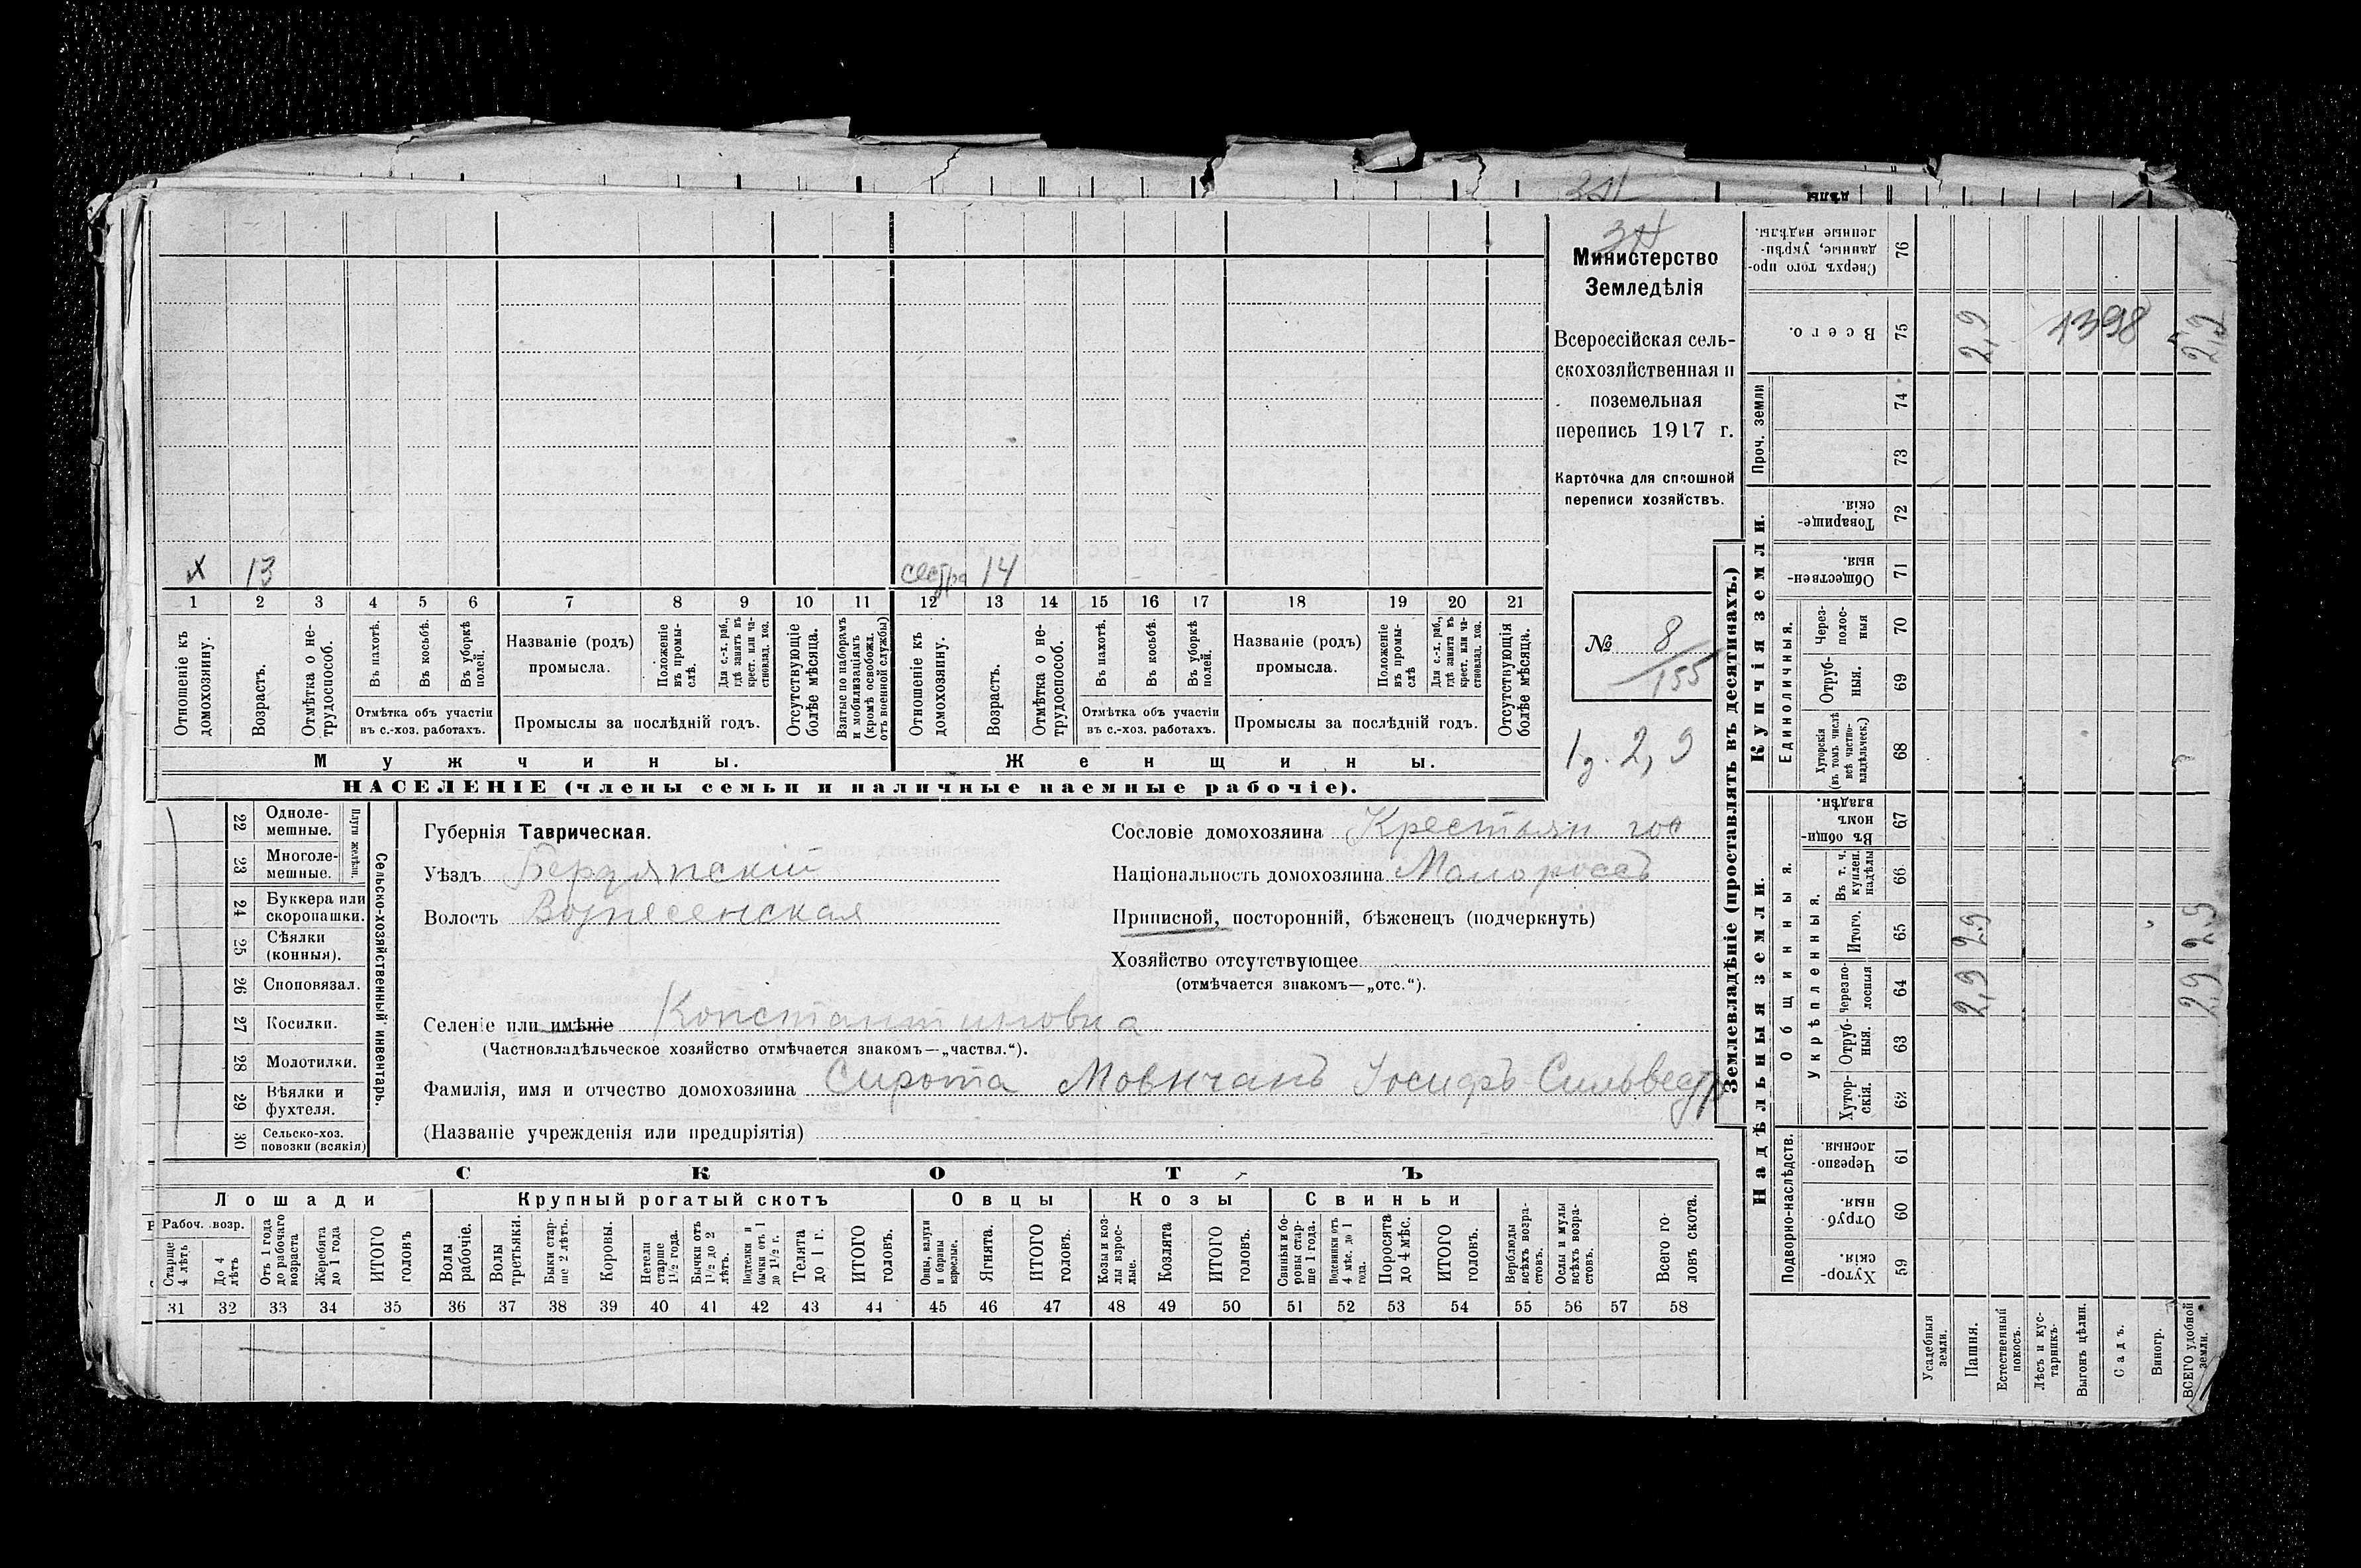 дѣлы
Министерство
Земледѣлія
Всероссійская сель-
скохозяйственная и
поземельная
перепись 1917 г.
Карточка для сплошной
переписи хозяйствъ.
№ 8
155
2,9
х 13 сестра 14
1 2 3 4 5 6 7 8 9 10 11 12 13 14 15 16 17 18 19 20 21
Отношеніе къ домохозяину.
Возрастъ.
Отмѣтка о не-трудоспособ.
Въ пахотѣ.
Въ косьбѣ.
Въ уборкѣ полей.
Отмѣтка объ участіи
въ с.-хоз. работахъ.
Названіе (родъ)
промысла.
Положеніе въ промы-слѣ.
Для с.-х. раб., гдѣ занятъ въ крест. или ча-стновлад. хоз.
Промыслы за послѣдній годъ.
Отсутствующіе болѣе мѣсяца.
Взятые по наборамъ и мобилизаціямъ (кромѣ освобожд. отъ военной службы)
Отношеніе къ домохозяину.
Возрастъ.
Отмѣтка о не-трудоспособ.
Въ пахотѣ.
Въ косьбѣ.
Въ уборкѣ полей.
Отмѣтка объ участіи
въ с.-хоз. работахъ.
Названіе (родъ)
промысла.
Положеніе въ промы-слѣ
Для с.-х. раб., гдѣ занята въ крест. или ча-стновлад. хоз.
Промыслы за послѣдній годъ.
Отсутствующія болѣе мѣсяца.
Мужчины. Женщины.
НАСЕЛЕНІЕ (члены семьи и наличные наемные рабочіе).
Сельско-хозяйственный инвентарь.
Плуги желѣзн.
22 Одноле-мешные.
23 Многоле-мешные.
24 Буккера или скоропашки.
25 Сѣялки (конныя).
26 Сноповязал.
27 Косилки.
28 Молотилки.
29 Вѣялки и фухтеля.
30 Сельско-хоз. повозки (всякія)
Губернія Таврическая.
Уѣздъ Бердянскій
Волость Вознесенская
Сословіе домохозяина
Національность домохозяина Малороссъ
Приписной, посторонній, бѣженецъ (подчеркнуть)
Хозяйство отсутствующее
(отмѣчается знакомъ—„отс.“).
Селеніе или имѣніе Константиновка
(Частновладѣльческое хозяйство отмѣчается знакомъ—„частвл.“).
Фамилія, имя и отчество домохозяина Сирота Мовчанъ Іосифъ Сильвестр
(Названіе учрежденія или предпріятія)
СКОТЪ
Лошади Крупный рогатый скотъ Овцы Козы Свиньи
Рабоч. возр.
Старше 4 лѣтъ
До 4 лѣтъ
Отъ 1 года до рабочаго возраста
Жеребята до 1 года
ИТОГО головъ
Волы рабочіе.
Волы третьяки.
Быки стар-ше 2 лѣтъ.
Коровы.
Нетели старше 1½ года.
Бычки отъ 1½ до 2 лѣтъ.
Подтелки и бычки отъ 1 до 1½ г.
Телята до 1 г.
ИТОГО головъ.
Овцы, валухи и бараны взрослые.
Ягнята.
ИТОГО головъ.
Козы и коз-лы взрос-лые.
Козлята
ИТОГО головъ.
Свиньи и бо-ровы стар-ше 1 года.
Подсвинки отъ 4 мѣс. до 1 года.
Поросята до 4 мѣс.
ИТОГО головъ.
Верблюды всѣхъ возра-стовъ.
Ослы и мулы всѣхъ возра-стовъ.
Всего го-ловъ скота.
31 32 33 34 35 36 37 38 39 40 41 42 43 44 45 46 47 48 49 50 51 52 53 54 55 56 57 58
Землевладѣніе (проставлять въ десятинахъ.)
Сверхъ того про-данные, укрѣп-ленные надѣлы. 76
Всего. 75 2,9 1398 2,9
Проч. земли
74
73
Купчія земли.
Товарище-скія. 72
Обществен-ныя. 71
Единоличныя.
Через-полос-ныя 70
Отруб-ныя. 69
Хуторскія (въ томъ числѣ всѣ частно-владѣльческ.) 68
Надѣльныя земли.
Общинныя.
Въ общин-номъ владѣн. 67
Укрѣпленныя.
Въ т. ч. куплен. надѣлы 66
Итого. 65 2,9 2,9
Черезпо-лосныя 64 2,9 2,9
Отруб-ныя. 63
Хутор-скія. 62
Подворно-наслѣдств.
Черезпо-лосныя. 61
Отруб-ныя. 60
Хутор-скія. 59
Усадебныя земли.
Пашня.
Естественный покосъ.
Лѣсъ и кус-тарникъ.
Выгонъ цѣлин.
Садъ.
Виногр.
ВСЕГО удобной земли.